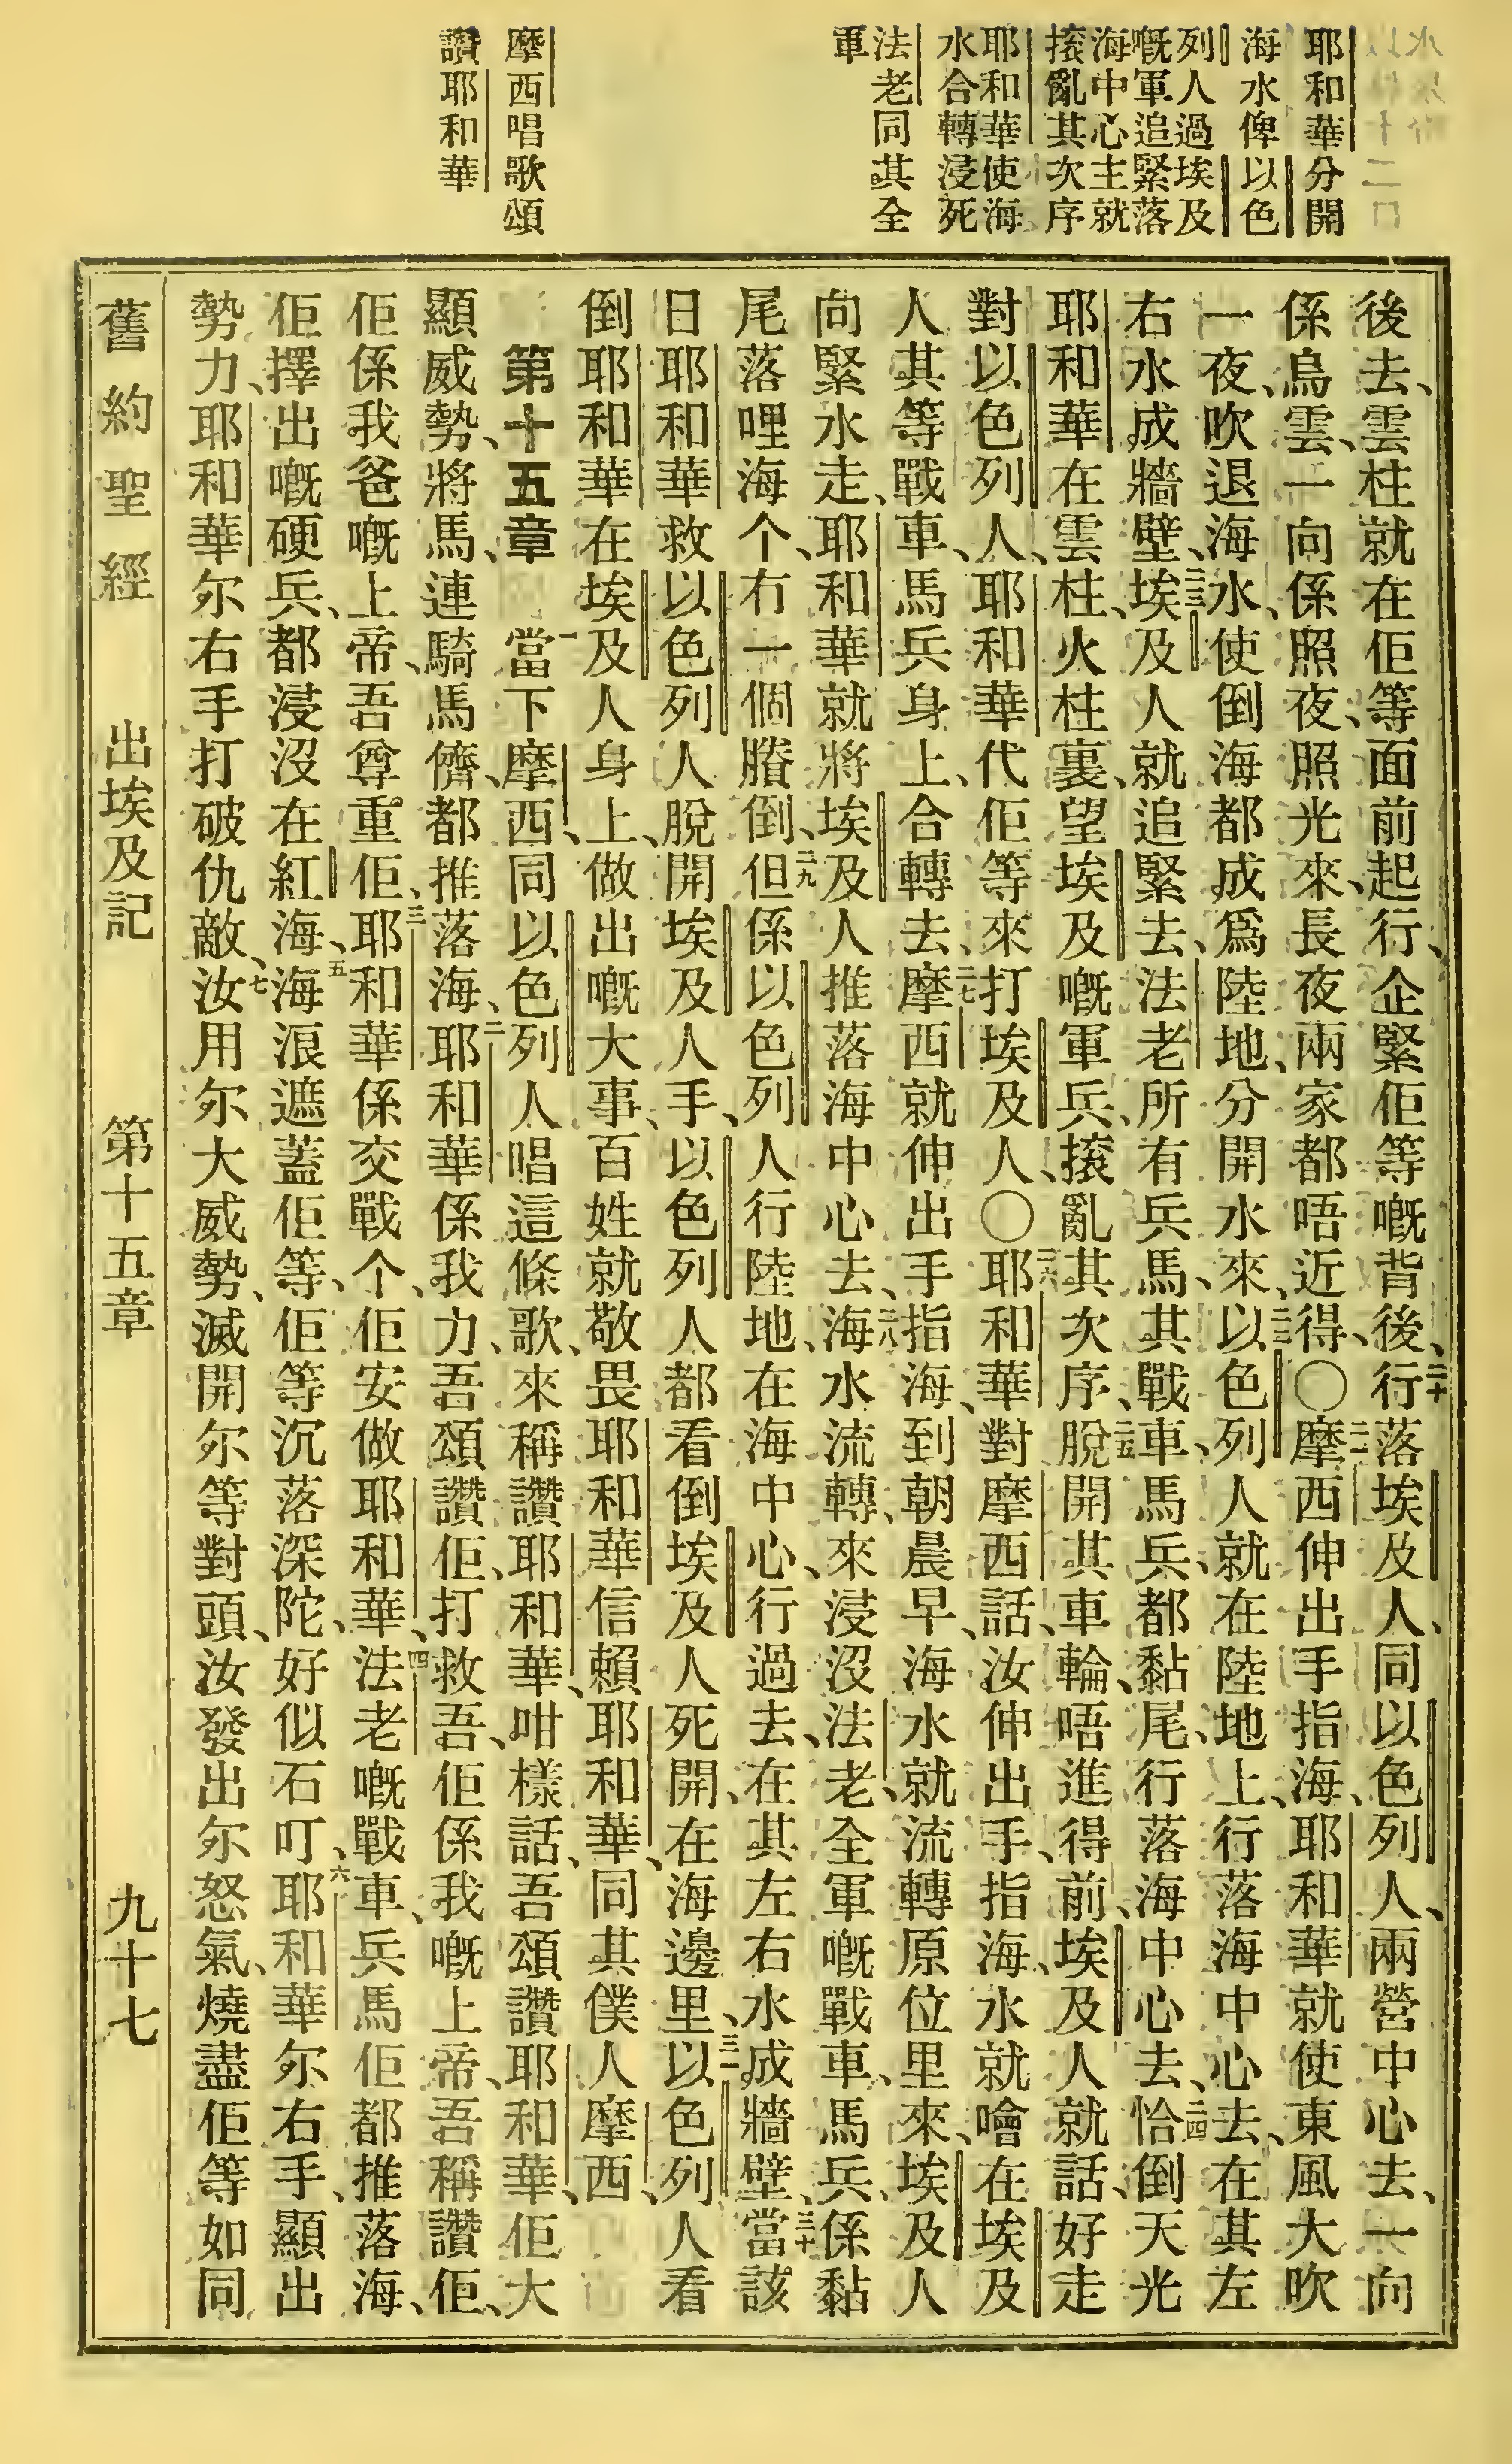 耶和華分開
海水俾以色
列人過埃及
嘅軍追緊落
海中心主就
㨰亂其次序
耶和華使海
水合轉浸死
法老同其全
軍
摩西唱歌頌
讚耶和華
後去、雲柱就在佢等面前起行、企緊佢等嘅背後、二十行落埃及人、同以色列人、兩營中心去、一向
係烏雲、一向係照夜、照光來、長夜兩家都唔近得、〇二一摩西伸出手指海、耶和華就使東風大吹
一夜、吹退海水、使倒海都成爲陸地、分開水來、二二以色列人就在陸地上、行落海中心去、在其左
右水成牆壁、二三埃及人就追緊去、法老所有兵馬、其戰車、馬兵、都黏尾、行落海中心去、二四恰倒天光
耶和華在雲柱、火柱裏、望埃及嘅軍兵、㨰亂其次序、二五脫開其車輪、唔進得前、埃及人就話、好走
對以色列人、耶和華代佢等來打埃及人、〇二六耶和華對摩西話、汝伸出手、指海、水就噲在埃及
人其等戰車、馬兵身上、合轉去、二七摩西就伸出手指海、到朝晨早、海水就流轉原位里來、埃及人
向緊水走、耶和華就將埃及人推落海中心去、二八海水流轉、來浸沒法老、全軍嘅戰車、馬兵、係黏
尾落哩海个、冇一個賸倒、二九但係以色列人行陸地、在海中心、行過去、在其左右水成牆壁、三十當該
日耶和華救以色列人脫開埃及人手、以色列人都看倒埃及人死開、在海邊里、三一以色列人看
倒耶和華在埃及人身上、做出嘅大事、百姓就敬畏耶和華信賴耶和華、同其僕人摩西、
第十五章 一當下摩西、同以色列人唱這條歌、來稱讚耶和華、咁樣話、吾頌讚耶和華、佢大
顯威勢、將馬、連騎馬儕、都推落海、二耶和華係我力、吾頌讚佢、打救吾、佢係我嘅上帝、吾稱讚佢、
佢係我爸嘅上帝、吾尊重佢、三耶和華係交戰个、佢安做耶和華、四法老嘅戰車、兵馬佢都推落海、
佢擇出嘅硬兵、都浸沒在紅海、五海浪遮蓋佢等、佢等沉落深陀、好似石叮、六耶和華尔右手、顯出
勢力、耶和華尔右手打破仇敵、七汝用尔大威勢、滅開尔等對頭、汝發出尔怒氣、燒盡佢等如同
舊約聖經 出埃及記 第十五章 九十七